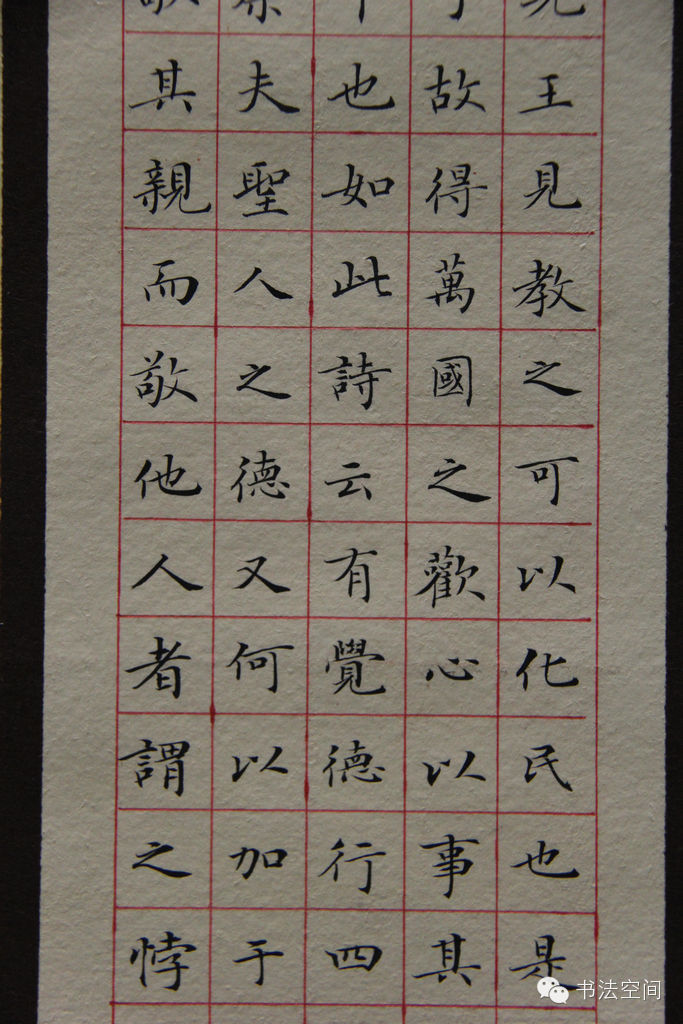 王見教之可以化民也是
故得萬國之歡心以事其
也如此詩云有覺德行四
夫聖人之德又何以加于
其親而敬他人者謂之悖
书法空间